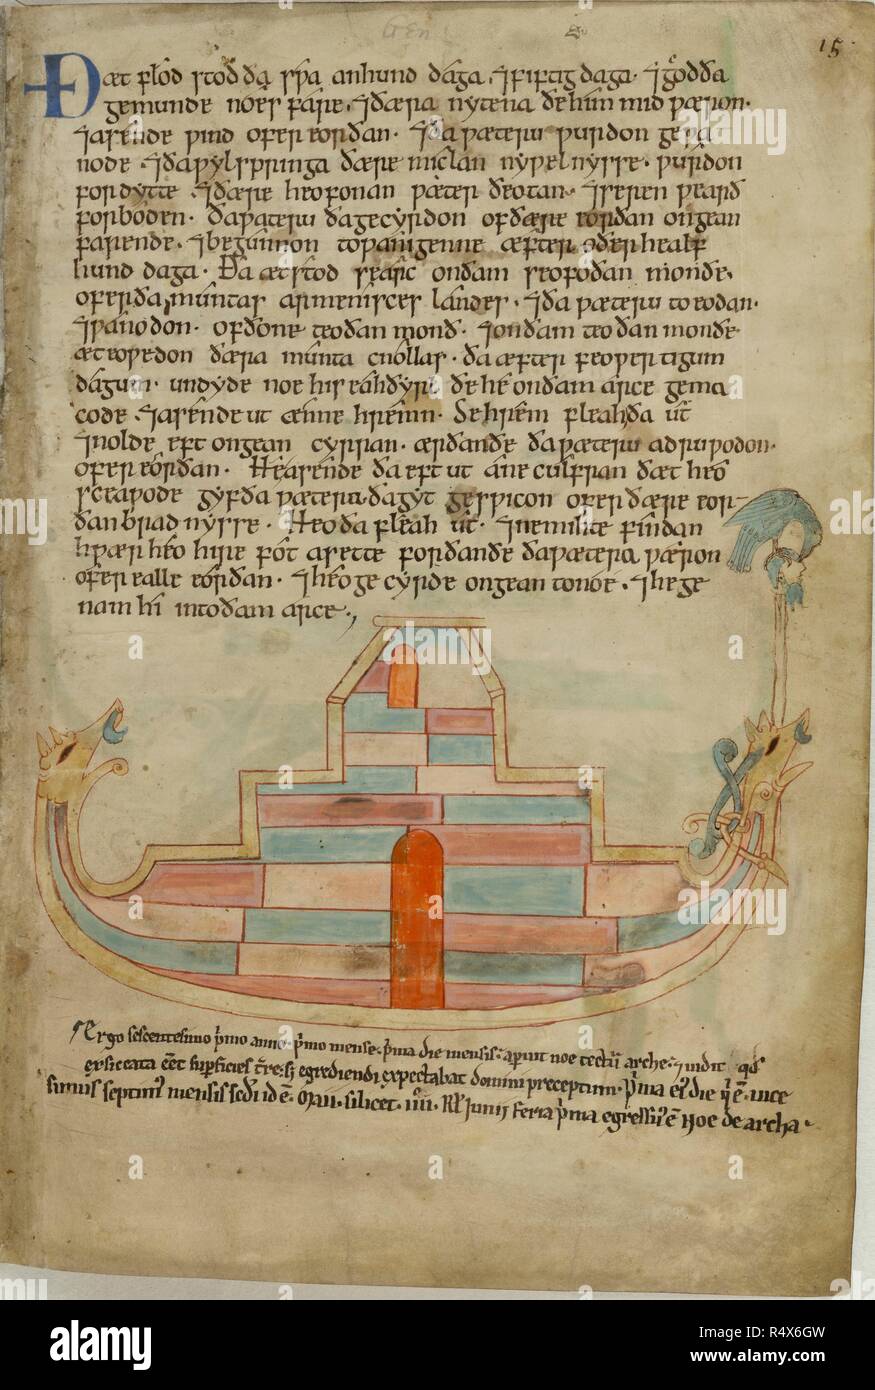 Gen
15
Ðæt flod stod ða swa anhund daga ⁊ fiftig daga · ⁊ god ða
gemunde noes fare · ⁊ ðæra nytena ðe him mid wæron ·
⁊ asende wind ofer eorðan · ⁊ ða wæteru wurdon gewa
node · ⁊ ða wylspringa ðære miclan nywelnysse · wurdon
fordytte ⁊ ðære heofonan wæter ðeotan · ⁊ se ren wearð
forboden · ða wæteru ða gecyrdon of ðære eorðan ongean
farende · ⁊ begunnon to wanigenne æfter oðer healf
hund daga · Ða ætstod se arc on ðam seofoðan monðe ·
ofer ða muntas armenisces landes · ⁊ ða wæteru to eodan ·
⁊ wanodon · oð ðone teoðan monð · ⁊ on ðam teoðan monðe
æteowedon ðæra munta cnollas · ða æfter feowertigum
dagum · undyde noe his eahðyrl ðe he on ðam arce gema
code ⁊ asende ut ænne hremn · Se hrem fleah ða ut
⁊ nolde eft ongean cyrran · ær ðan ðe ða wæteru adruwodon ·
ofer eorðan · He asende ða eft ut ane culfran ðæt heo
sceawode gyf ða wæteru ða gyt geswicon ofer ðære eor-
ðan bradnysse · Heo ða fleah ut · ⁊ ne mihte findan
hwær heo hire fot asette for ðan ðe ða wætera wæron
ofer ealle eorðan · ⁊ heo gecyrde ongean to noe · ⁊ he ge
nam hi in to ðam arce ·
Ergo sescentesimo p̄mo anno · p̄mo mense · p̄ma die mensis · aperuit noe tectū arche · ⁊ uidit q̄d
exsiccata eēt sup̄ficies t̄re · s; egrediendi expectabat domini preceptum · p̄ma ei᷒ die ·
simus septim᷒ mensis sedi id ē · Mai · silicet · iiii · kl᷒ Iunii feria p̄ma egressu᷒ ē Noe de archa ·
alamy
Image ID: R4X6GW
www.alamy.com